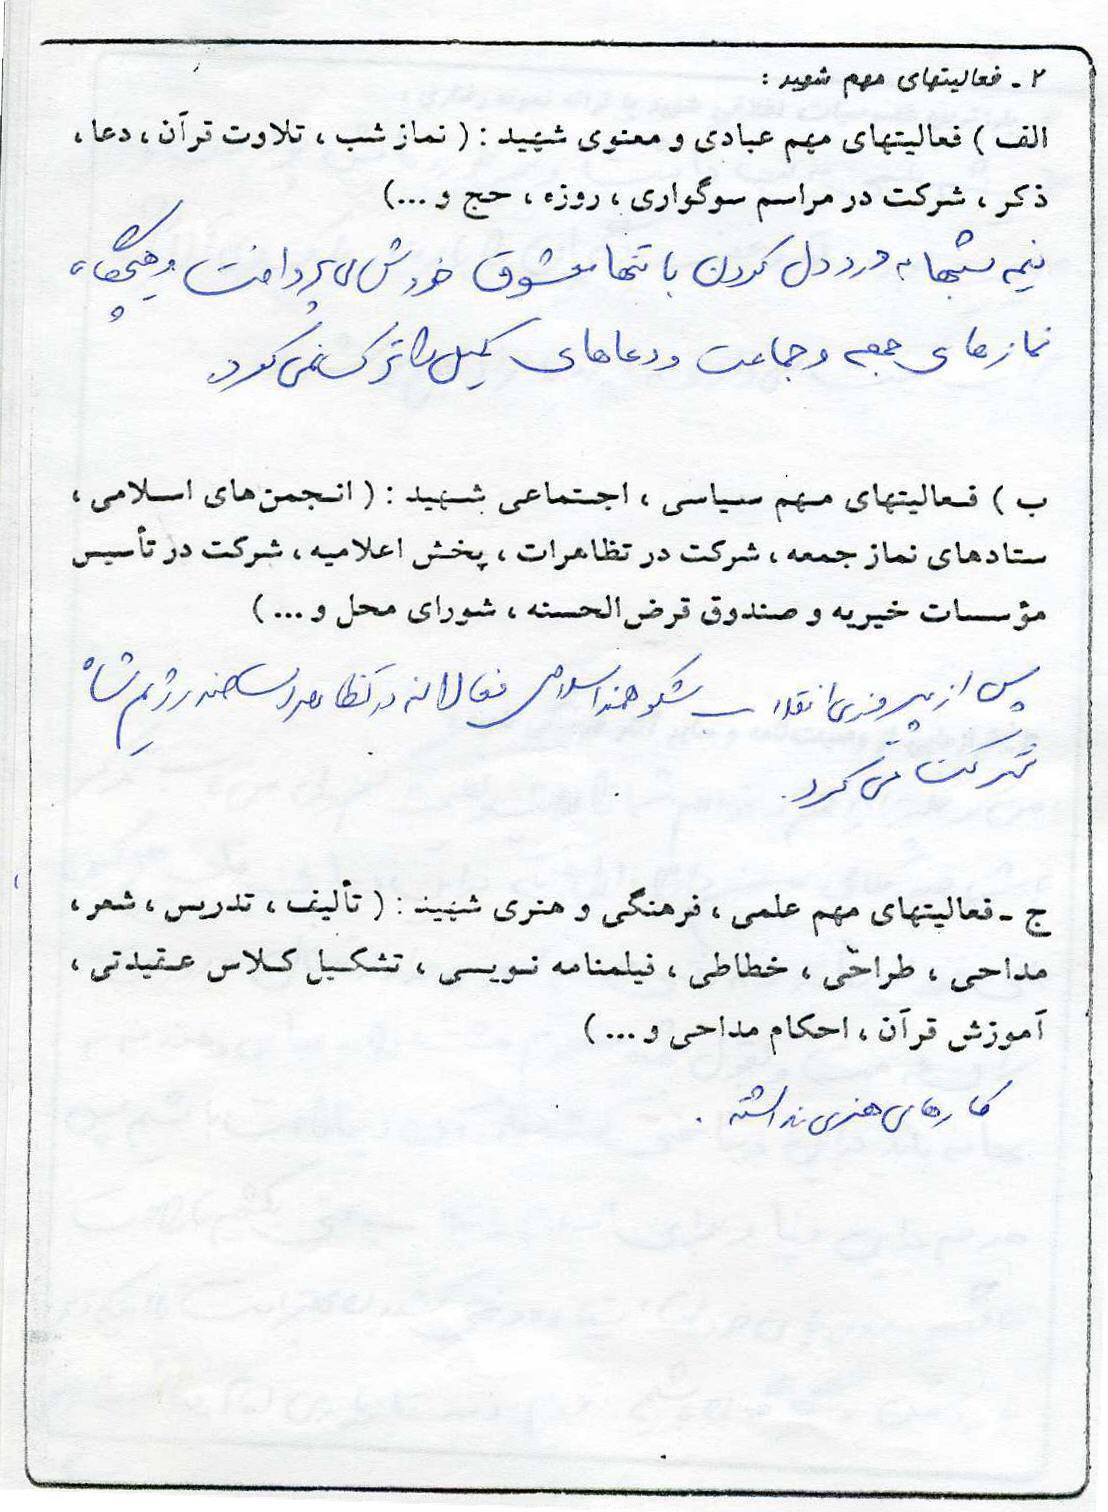 ۲ - فعالیتهای مهم شهید :
الف ) فعالیتهای مهم عبادی و معنوی شهید : ( نماز شب ، تلاوت قرآن ، دعا ،
ذکر ، شرکت در مراسم سوگواری ، روزه ، حج و ...)
نیمه شبها به درد دل کردن با تنها معشوق خودش می پرداخت و هیچگاه
نمازهای جمعه و جماعت و دعاهای کمیل را ترک نمی کرد.
ب ) فعالیتهای مهم سیاسی ، اجتماعی شهید : ( انجمن‌های اسلامی ،
ستادهای نماز جمعه ، شرکت در تظاهرات ، پخش اعلامیه ، شرکت در تأسیس
مؤسسات خیریه و صندوق قرض‌الحسنه ، شورای محل و ... )
پس از پیروزی انقلاب شکوهمند اسلامی فعالانه در تظاهرات ضد رژیم شاه
شرکت می کرد.
ج - فعالیتهای مهم علمی ، فرهنگی و هنری شهید : ( تألیف ، تدریس ، شعر ،
مداحی ، طراحّی ، خطاطی ، فیلمنامه نویسی ، تشکیل کلاس عقیدتی ،
آموزش قرآن ، احکام مداحی و ... )
کارهای هنری نداشته .